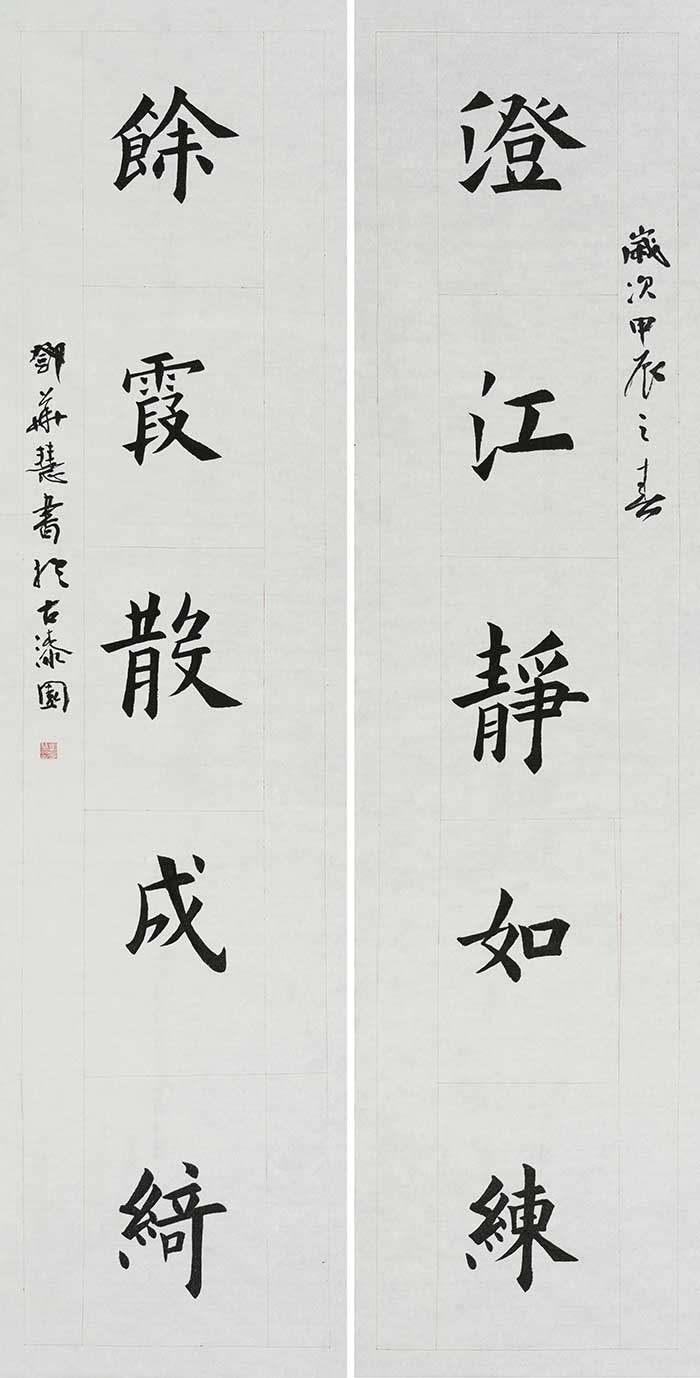 歲次甲辰之春
澄江靜如練
餘霞散成綺
鄧華慧書於古漆園